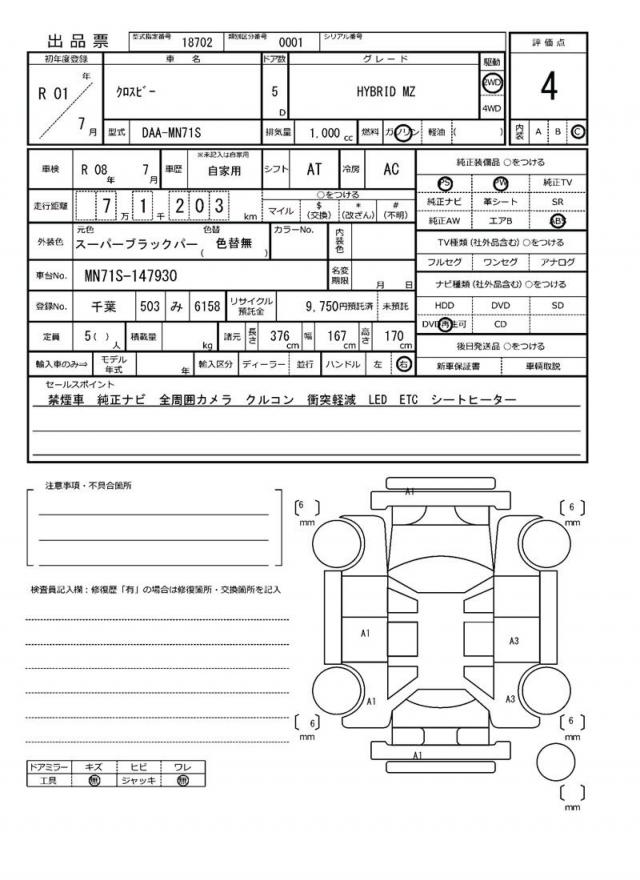 出品票 型式指定番号 18702 類別区分番号 0001 シリアル番号
評価点
4
内装 A B C
初年度登録 車名 ドア数 グレード 駆動
R 01 年 7 月 クロスビー 5 D HYBRID MZ 2WD 4WD
型式 DAA-MN71S 排気量 1.000 cc 燃料 ガソリン 軽油 ( )
車検 R 08 年 7 月 車歴 ※未記入は自家用 自家用 シフト AT 冷房 AC
走行距離 7 万 1 千 2 0 3 km
○をつける
マイル $ (交換) * (改ざん) # (不明)
外装色 元色 スーパーブラックパー 色替 ( 色替無 ) カラーNo. 内装色
車台No. MN71S-147930 名変期限 月 日
登録No. 千葉 503 み 6158 リサイクル預託金 9,750円預託済 未預託
定員 5( ) 人 積載量 kg 諸元 長さ 376 cm 幅 167 cm 高さ 170 cm
輸入車のみ⇒ モデル年式 年 輸入区分 ディーラー 並行 ハンドル 左 右
純正装備品 ○をつける
PS PW 純正TV
純正ナビ 革シート SR
純正AW エアB ABS
TV種類(社外品含む)○をつける
フルセグ ワンセグ アナログ
ナビ種類(社外品含む)○をつける
HDD DVD SD
DVD再生可 CD
後日発送品 ○をつける
新車保証書 車輌取説
セールスポイント
禁煙車 純正ナビ 全周囲カメラ クルコン 衝突軽減 LED ETC シートヒーター
注意事項・不具合箇所
検査員記入欄:修復歴「有」の場合は修復箇所・交換箇所を記入
A1
[ 6 ] mm
[ 6 ] mm
A1 A3
A1 A3
[ 6 ] mm
[ 6 ] mm
A1
[ ] mm
ドアミラー キズ ヒビ ワレ
工具 無 ジャッキ 無